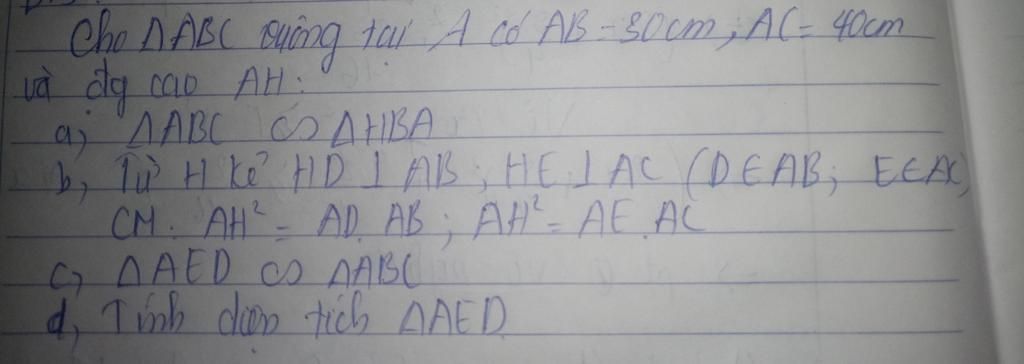 Cho ΔABC vuông tại A có AB = 30cm; AC = 40cm
và đg cao AH:
a, ΔABC ∽ ΔHBA
b, Từ H kẻ HD ⊥ AB; HE ⊥ AC (D ∈ AB; E ∈ AC)
CM. AH² = AD. AB; AH² = AE. AC
c, ΔAED ∽ ΔABC
d, Tính diện tích ΔAED